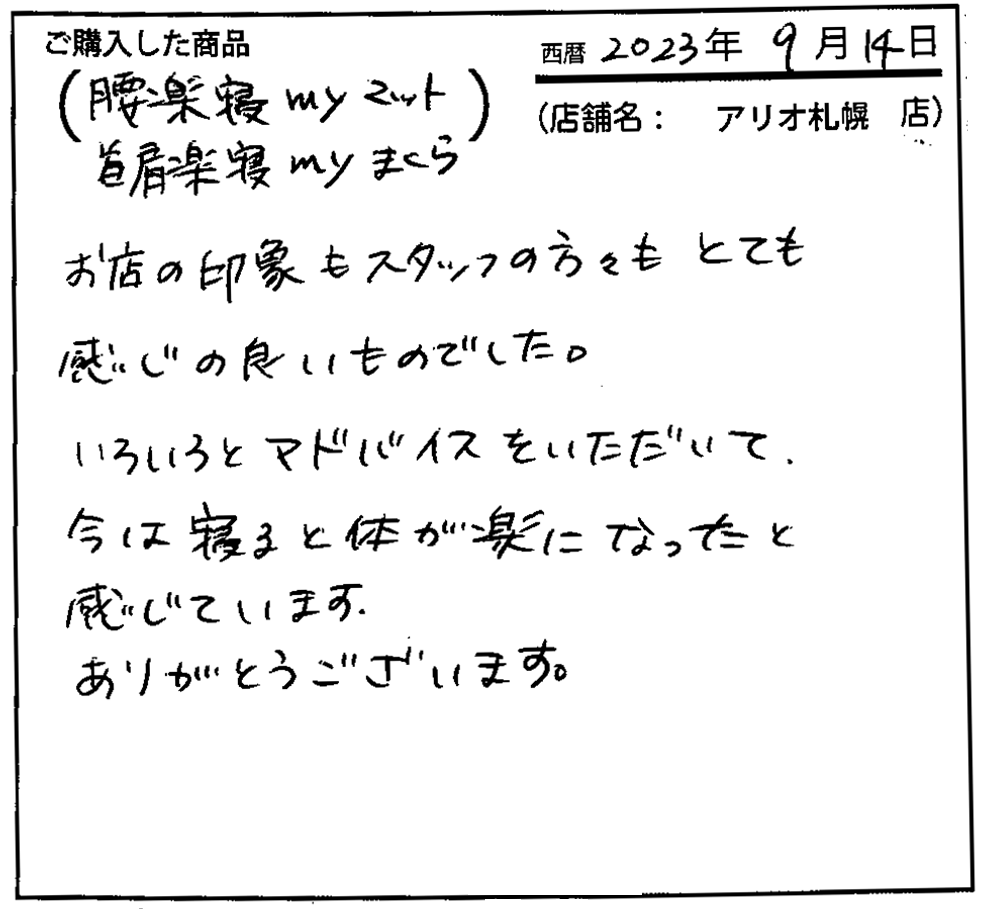 ご購入した商品
西暦 2023年 9月14日
(腰楽寝myマット)
(店舗名： アリオ札幌 店)
首肩楽寝myまくら
お店の印象もスタッフの方々もとても
感じの良いものでした。
いろいろとアドバイスをいただいて、
今は寝ると体が楽になったと
感じています。
ありがとうございます。